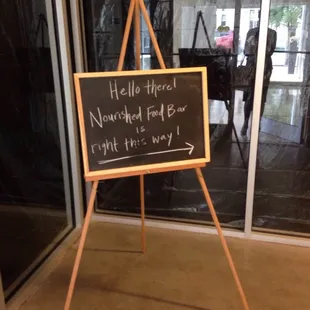 Hello there!
Nourished Food Bar
is
right this way!